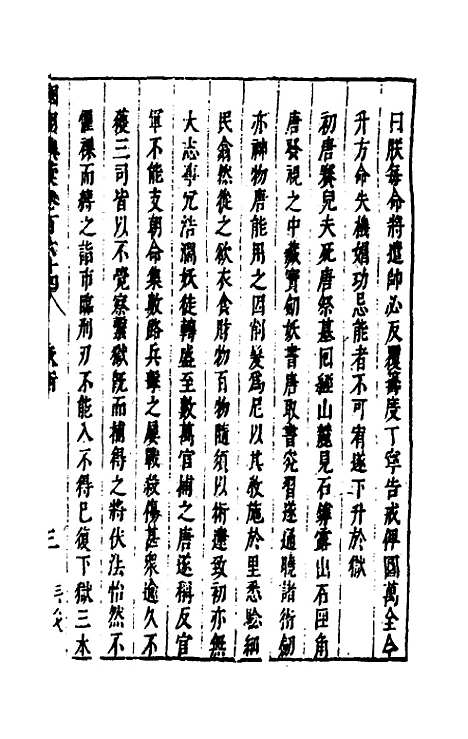 曰朕每命將遣帥必反覆籌度丁寧告戒俾圖萬全今
升方命失機媢功忌能者不可宥遂下升於獄
初唐賽兒夫死唐祭墓囘經山麓見石罅露山石匣角
唐發視之中藏寶劒妖書唐取書究習遂通曉諸術劒
亦神物唐能用之因削髮爲尼以其敎施於里悉驗細
民翕然從之欲衣食財物百物隨須以術運致初亦無
大志事冗浩濶妖徒轉盛至數萬官捕之唐遂稱反官
軍不能支朝命集數路兵擊之屢戰殺傷甚衆逾久不
獲三司皆以不覺察繫獄旣而捕得之將伏法怡然不
懼裸而縛之詣市臨刑刃不能入不得已復下獄三木
國朝典彙卷百六十四
三